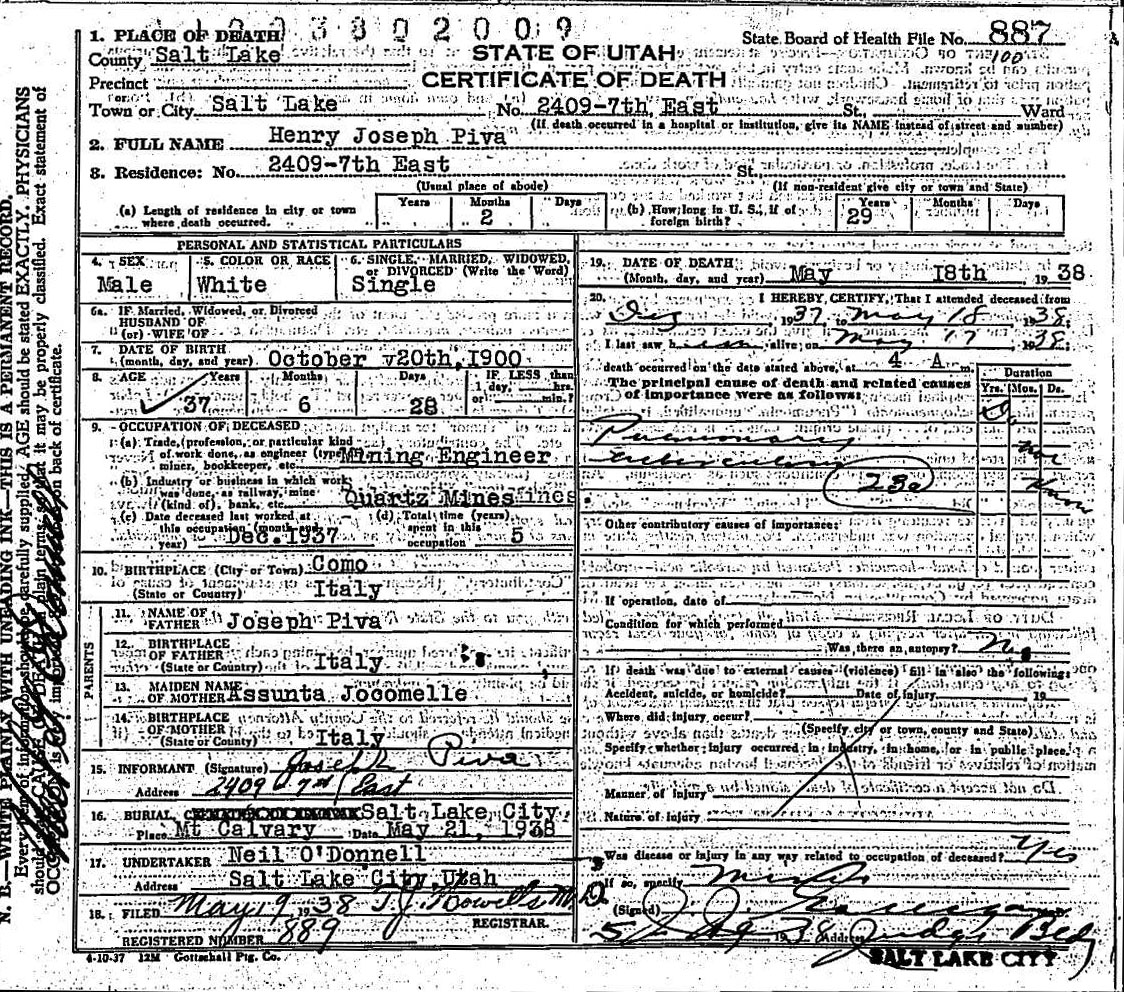 1 2 0 3 8 0 2 0 0 9
1. PLACE OF DEATH
State Board of Health File No. 887
County Salt Lake
100
STATE OF UTAH
Precinct
CERTIFICATE OF DEATH
or
Town or City Salt Lake No. 2409-7th East St., Ward
(If death occurred in a hospital or institution, give its NAME instead of street and number)
2. FULL NAME Henry Joseph Piva
3. Residence: No. 2409-7th East St.
(Usual place of abode) (If non-resident give city or town and State)
(a) Length of residence in city or town where death occurred. Years Months 2 Days
(b) How long in U. S., if of foreign birth? Years 29 Months Days
PERSONAL AND STATISTICAL PARTICULARS
4. SEX Male
5. COLOR OR RACE White
6. SINGLE, MARRIED, WIDOWED, or DIVORCED (Write the Word) Single
6a. IF Married, Widowed, or Divorced
HUSBAND OF
(or) WIFE OF
7. DATE OF BIRTH
(month, day, and year) October 20th, 1900
8. AGE Years 37 Months 6 Days 28 IF LESS than 1 day, hrs. or min.?
9. OCCUPATION OF DECEASED
(a) Trade, profession, or particular kind
of work done, as engineer (type) Mining Engineer
miner, bookkeeper, etc.
(b) Industry or business in which work
was done, as railway, mine Quartz Mines
(kind of), bank, etc.
(c) Date deceased last worked at
this occupation (month and
year) Dec. 1937
(d) Total time (years)
spent in this
occupation 5
10. BIRTHPLACE (City or Town) Como
(State or Country) Italy
PARENTS
11. NAME OF
FATHER Joseph Piva
12. BIRTHPLACE
OF FATHER
(State or Country) Italy
13. MAIDEN NAME
OF MOTHER Assunta Jocomelle
14. BIRTHPLACE
OF MOTHER
(State or Country) Italy
15. INFORMANT (Signature) Joseph Piva
Address 2409 7th East
16. BURIAL Salt Lake City
Place Mt Calvary Date May 21, 1938
17. UNDERTAKER Neil O'Donnell
Address Salt Lake City, Utah
18. FILED May 19 1938 T.J. Howells M.D.
REGISTRAR.
REGISTERED NUMBER 889
4-10-37 12M Gottschall Ptg. Co.
19. DATE OF DEATH
(Month, day, and year) May 18th 1938
20. I HEREBY CERTIFY, That I attended deceased from
Dec 1937, to May 18 1938;
I last saw him alive on May 17 1938;
death occurred on the date stated above, at 4 A m.
The principal cause of death and related causes
of importance were as follows:
Duration
Yrs. Mos. Ds.
Pulmonary
tuberculosis
23a
Other contributory causes of importance:
If operation, date of
Condition for which performed
Was there an autopsy? No
If death was due to external causes (violence) fill in also the following:
Accident, suicide, or homicide? Date of injury 19
Where did injury occur?
(Specify city or town, county and State)
Specify whether injury occurred in industry, in home, or in public place,
Manner of injury
Nature of injury
Was disease or injury in any way related to occupation of deceased? Yes
If so, specify
(Signed) J. J.
1938 Address Judge Bldg
SALT LAKE CITY
N. B.—WRITE PLAINLY WITH UNFADING INK—THIS IS A PERMANENT RECORD.
Every item of information should be carefully supplied. AGE should be stated EXACTLY. PHYSICIANS
should state CAUSE OF DEATH in plain terms, so that it may be properly classified. Exact statement of
OCCUPATION is very important. back of certificate.